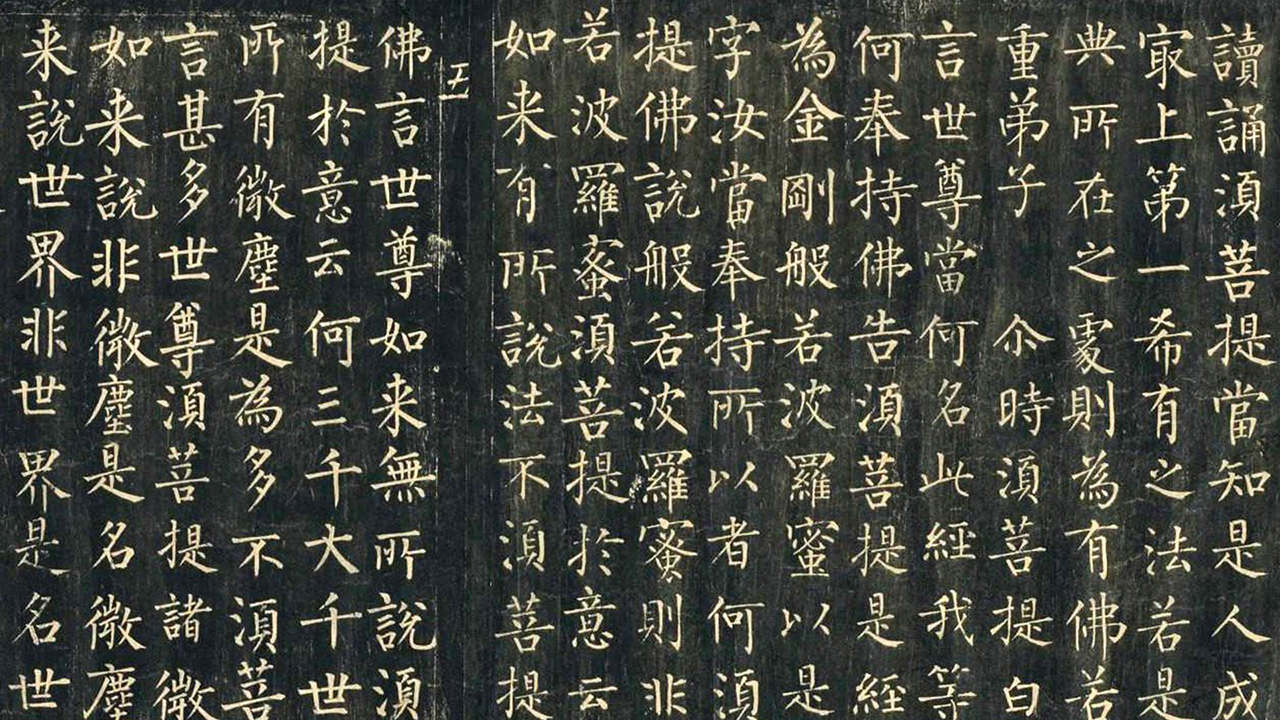 讀誦湏菩提當知是人成
冣上第一希有之法若是
典所在之䖏則為有佛若
重弟子 尒時湏菩提白
言世尊當何名此經我等
何奉持佛告湏菩提是經
為金剛般若波羅蜜以是
字汝當奉持所以者何湏
提佛說般若波羅蜜則非
若波羅蜜湏菩提於意云
如来有所說法不湏菩提
五
佛言世尊如来無所說湏
提於意云何三千大千世
所有微塵是為多不湏菩
言甚多世尊湏菩提諸微
如来說非微塵是名微塵
来說世界非世界是名世